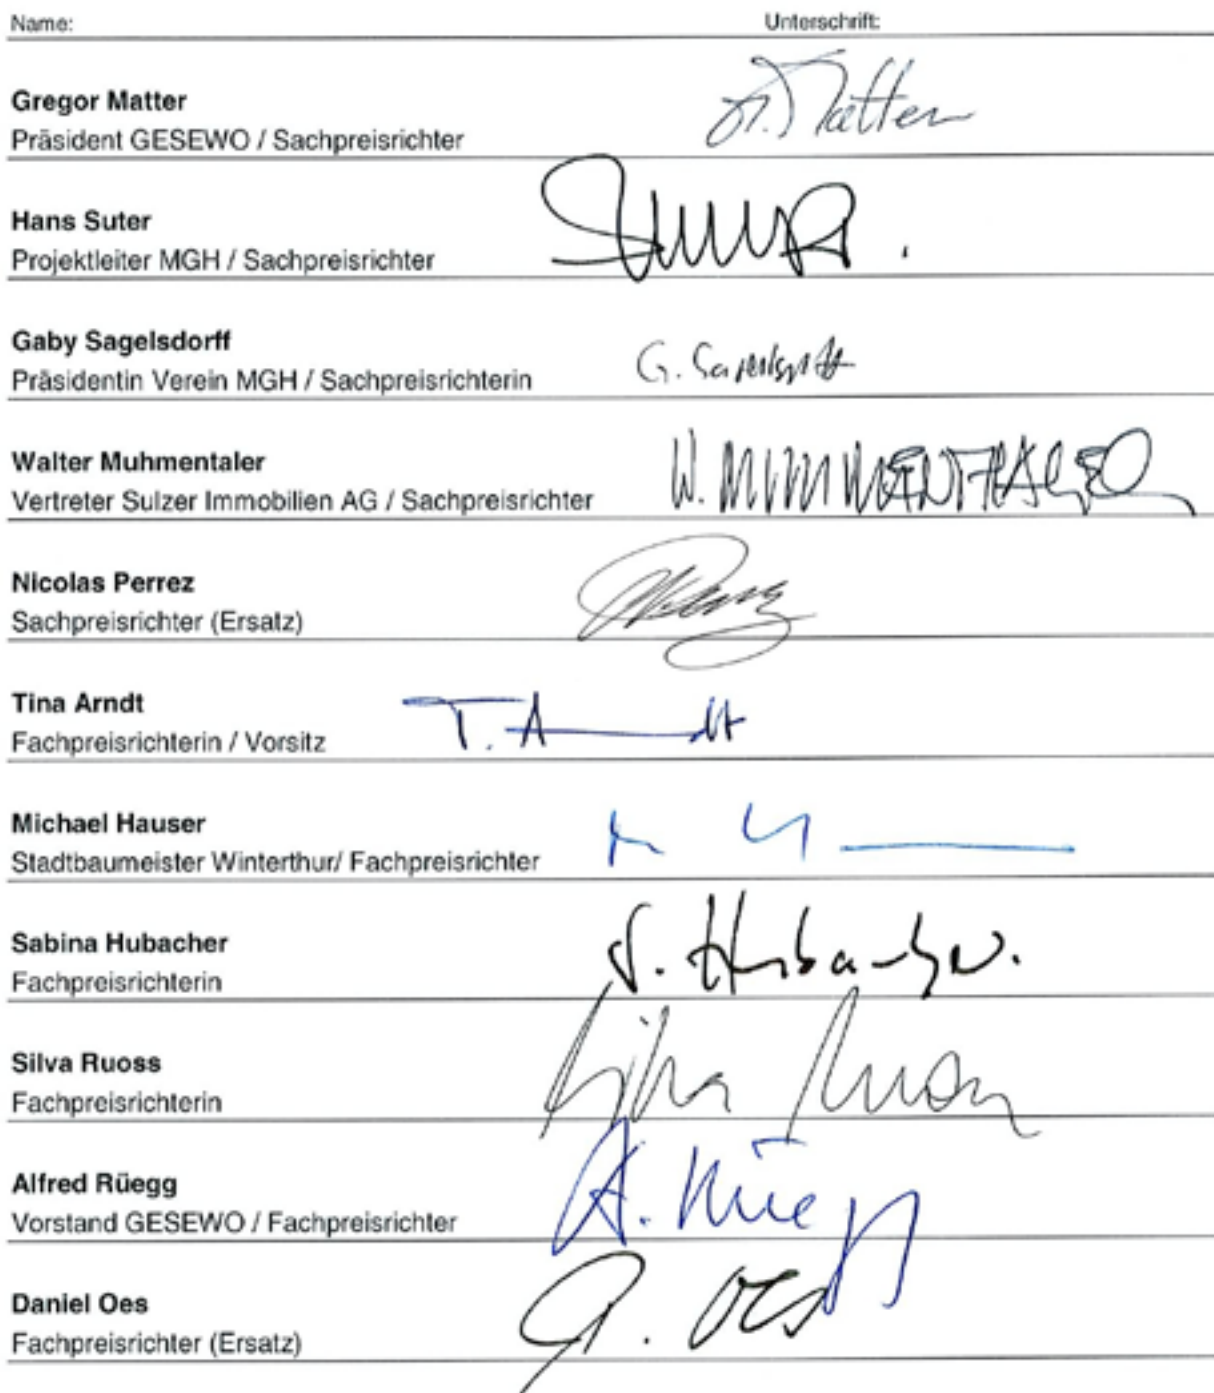 Name: Unterschrift:
Gregor Matter
Präsident GESEWO / Sachpreisrichter
G. Matter
Hans Suter
Projektleiter MGH / Sachpreisrichter
Gaby Sagelsdorff
Präsidentin Verein MGH / Sachpreisrichterin
G. Sagelsdorff
Walter Muhmentaler
Vertreter Sulzer Immobilien AG / Sachpreisrichter
W. MUMMENTHALER
Nicolas Perrez
Sachpreisrichter (Ersatz)
Tina Arndt
Fachpreisrichterin / Vorsitz
T. Arndt
Michael Hauser
Stadtbaumeister Winterthur/ Fachpreisrichter
Sabina Hubacher
Fachpreisrichterin
S. Hubacher.
Silva Ruoss
Fachpreisrichterin
Silva Ruoss
Alfred Rüegg
Vorstand GESEWO / Fachpreisrichter
A. Rüegg
Daniel Oes
Fachpreisrichter (Ersatz)
Oes